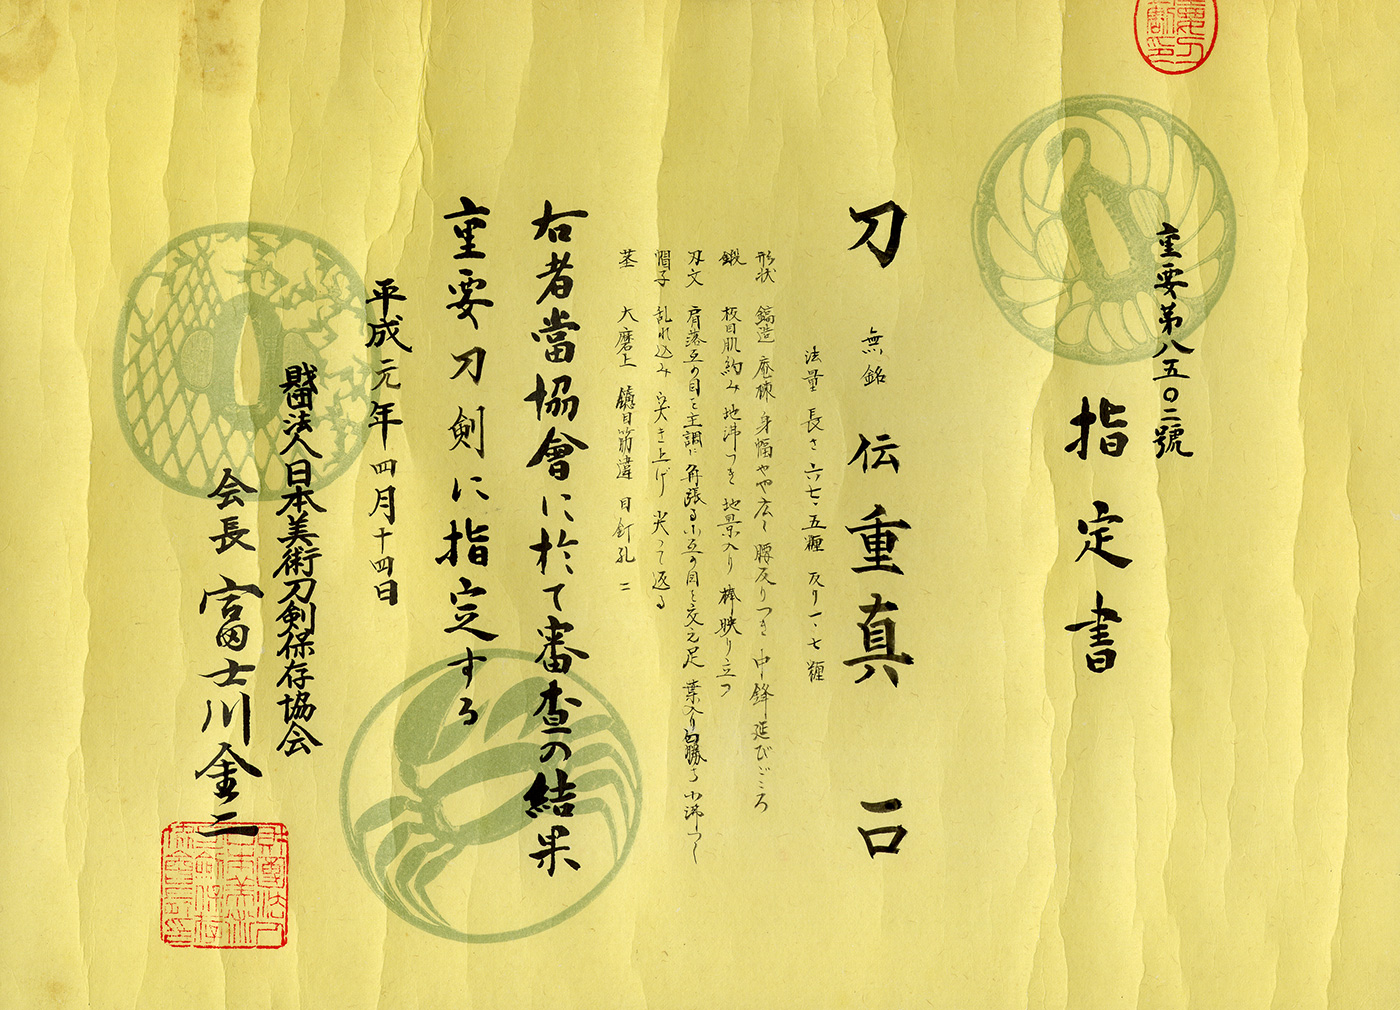 重要第八五〇二號
指定書
刀 無銘 伝重真 一口
法量 長さ 六七・五糎 反り 一・七糎
形状 鎬造 庵棟 身幅やや広く 腰反りつき 中鋒延びごころ
鍛 板目肌約み 地沸つき 地景入り 棒映り立つ
刃文 肩落互の目を主調に 角張る小互の目を交え 足 葉入り 匂勝ち 小沸つく
帽子 乱れ込み 突き上げ 尖って返る
茎 大磨上 鑢目筋違 目釘孔二
右者當協會に於て審査の結果
重要刀剣に指定する
平成元年四月十四日
財団法人日本美術刀剣保存協会
会長 富士川金二